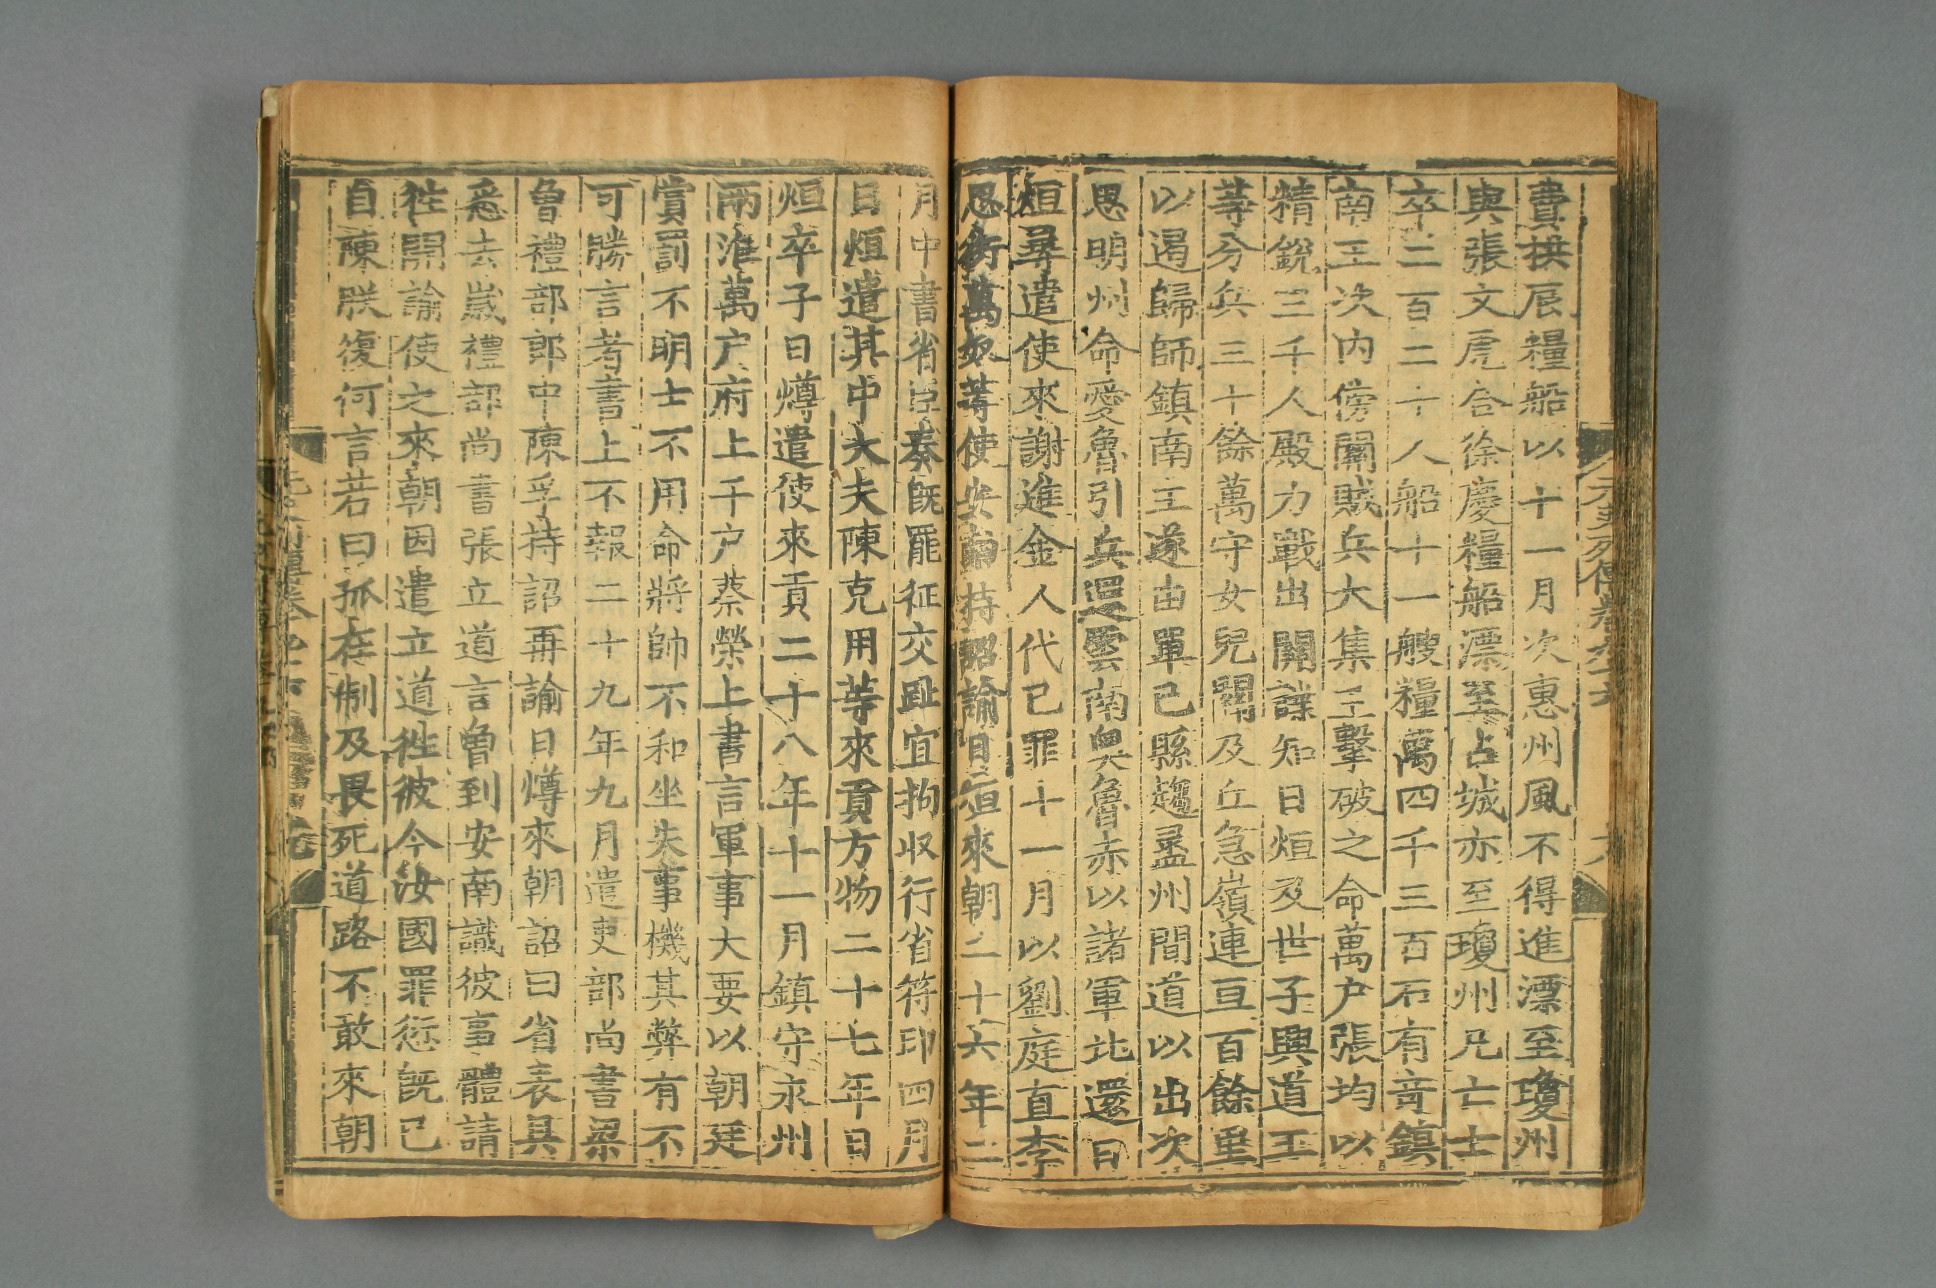 費拱辰糧船以十一月次惠州風不得進漂至瓊州
與張文虎合徐慶糧船漂至占城亦至瓊州凡亡士
卒二百二十人船十一艘糧萬四千三百石有奇鎮
南王次內傍關賊兵大集王擊破之命萬戶張均以
精銳三千人殿力戰出關諜知日烜及世子興道王
等分兵三十餘萬守女兒關及丘急嶺連亘百餘里
以遏歸師鎮南王遂由單己縣趨盝州間道以出次
思明州命愛魯引兵還雲南奧魯赤以諸軍北還日
烜尋遣使來謝進金人代己罪十一月以劉庭直李
思衍萬奴等使安南持詔諭日烜來朝二十六年二
月中書省臣奏既罷征交趾宜拘收行省符印四月
日烜遣其中大夫陳克用等來貢方物二十七年日
烜卒子日燇遣使來貢二十八年十一月鎮守永州
兩淮萬戶府上千戶蔡榮上書言軍事大要以朝廷
賞罰不明士不用命將帥不和坐失事機其弊有不
可勝言者書上不報二十九年九月遣吏部尚書梁
曾禮部郎中陳孚持詔再諭日燇來朝詔曰省表具
悉去歲禮部尚書張立道言曾到安南識彼事體請
徃開諭使之來朝因遣立道徃彼今汝國罪愆既已
自陳朕復何言若曰孤在制及畏死道路不敢來朝